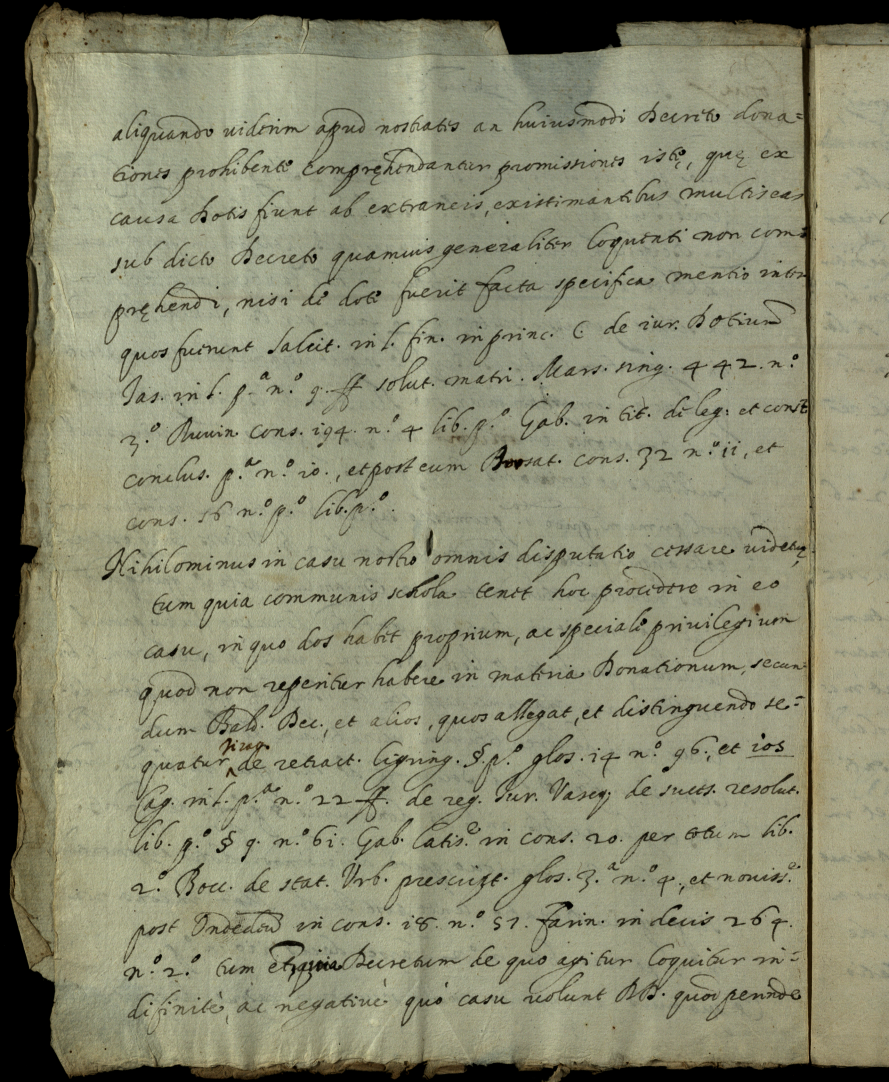 aliquando uiderim apud nostrates an huiusmodi Decreto dona=
tiones prohibente compręhendantur promissiones istę, quę ex
causa Dotis fiunt ab extraneis, existimantibus multis eas
sub dicto Decreto quamuis generaliter loquenti non com=
pręhendi, nisi de dote fuerit facta specifica mentio inter
quos fuerunt Salicit. in l. fin. in princ. C de iur. Dotium
Ias. in l. p.ª n.º 9. ff solut. matri. Mars. sing. 442. n.º
3.º Ruuin. cons. 194. n.º 4 lib. p.º Gab. in tit. de leg. et const
conclus. p.ª n.º 10., et post eum Bursat. cons. 32 n.º 11, et
cons. 56 n.º p.º lib. p.º.
Nihilominus in casu nostro omnis disputatio cessare uidetur,
tum quia communis schola tenet hoc procedere in eo
casu, in quo dos habet proprium, ac speciale priuilegium
quod non reperitur habere in materia Donationum, secun=
dum Bald. Dec., et alios, quos allegat, et distinguendo se=
quatur Tiraq. de retract. ligning. §. p.º glos. 14 n.º 96., et ios
Cag. in l. p.ª n.º 22 ff. de reg. Iur. Vasq. de succes. resolut.
lib. p.º § 9. n.º 61. Gab. latis.e in cons. 20. per totum lib.
2.º Bocc. de stat. Urb. glos. 3.ª n.º 4., et nouiss.e
post Ondedeum in cons. 18. n.º 57. Farin. in decis 264.
n.º 2.º tum etiam quia Decretum de quo agitur loquitur in=
difinitè, ac negatiuè quo casu uolunt DD. quod perinde